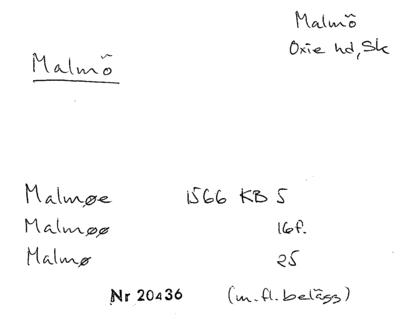 Malmö
Oxie hd, Sk
Malmö
Malmøe 1566 KB 5
Malmøø 16f.
Malmø 25
Nr 20436 (m.fl. belägg)